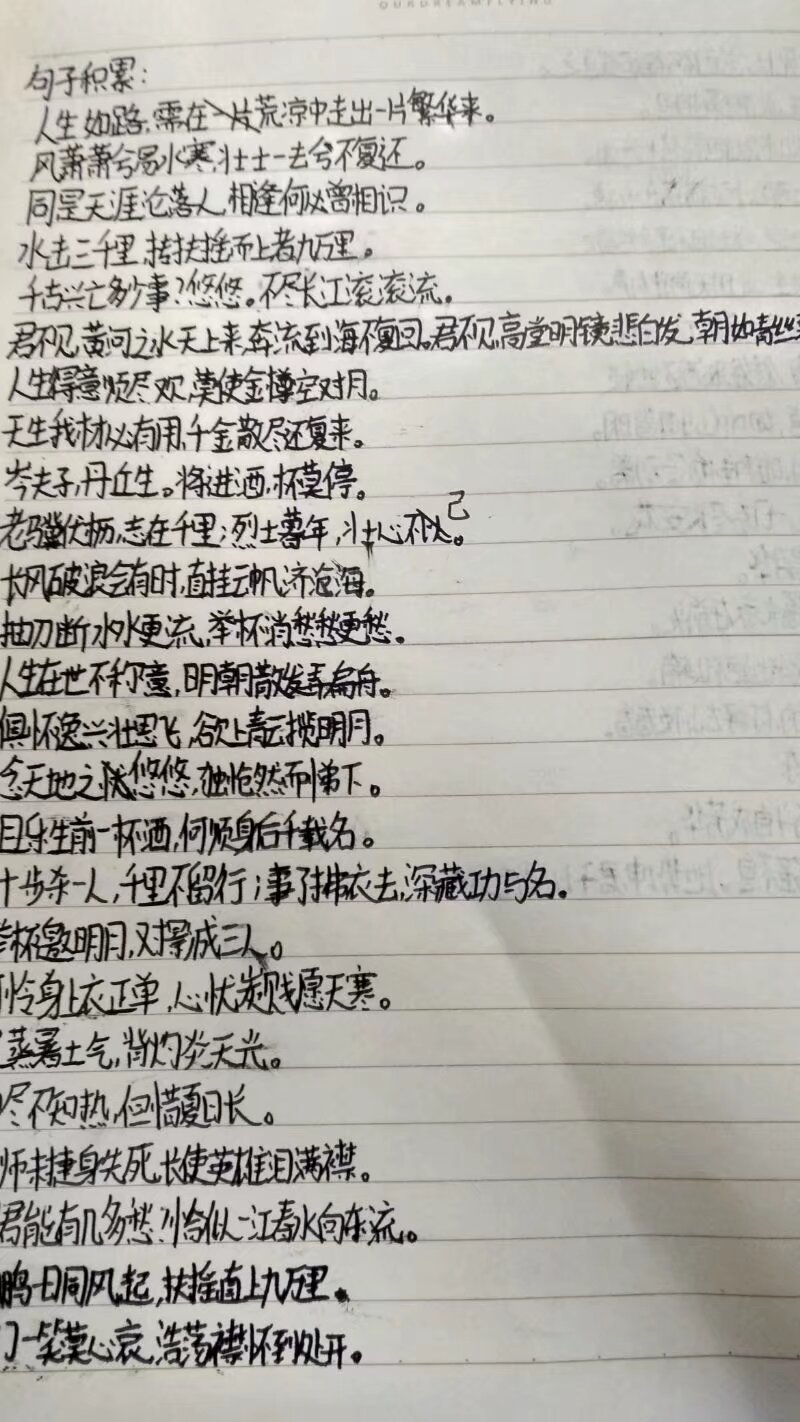 OURDREAMFLYING
句子积累：
人生如路，需在一片荒凉中走出一片繁华来。
风萧萧兮易水寒，壮士一去兮不复还。
同是天涯沦落人，相逢何必曾相识。
水击三千里，抟扶摇而上者九万里。
千古兴亡多少事？悠悠。不尽长江滚滚流。
君不见，黄河之水天上来，奔流到海不复回。君不见，高堂明镜悲白发，朝如青丝
人生得意须尽欢，莫使金樽空对月。
天生我材必有用，千金散尽还复来。
岑夫子，丹丘生。将进酒，杯莫停。
老骥伏枥，志在千里；烈士暮年，壮心不已。
长风破浪会有时，直挂云帆济沧海。
抽刀断水水更流，举杯消愁愁更愁。
人生在世不称意，明朝散发弄扁舟。
俱怀逸兴壮思飞，欲上青云揽明月。
念天地之悠悠，独怆然而涕下。
且乐生前一杯酒，何须身后千载名。
十步杀一人，千里不留行；事了拂衣去，深藏功与名。
举杯邀明月，对影成三人。
怜身上衣正单，心忧炭贱愿天寒。
蒸暑土气，背灼炎天光。
尽不知热，但惜夏日长。
师未捷身先死，长使英雄泪满襟。
君能有几多愁？恰似一江春水向东流。
鹏一日同风起，扶摇直上九万里。
门一笑莫心哀，浩荡襟怀到处开。